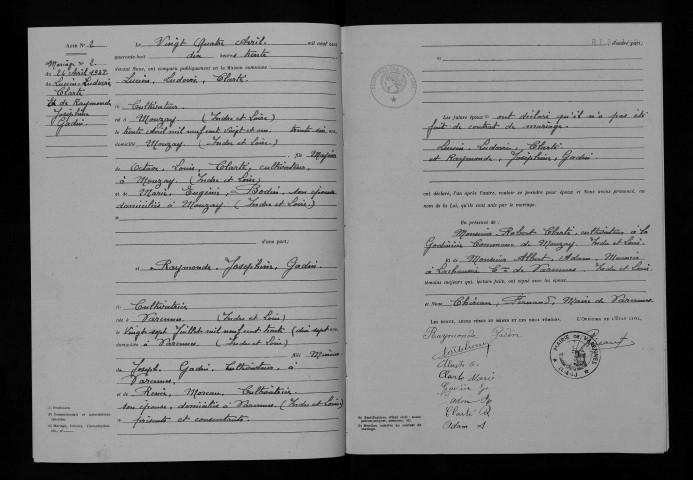 Acte N.° 2
Mariage N.° 2
du 24 Avril 1948
de Lucien, Ludovic
Clarté
et de Raymonde,
Joséphine
Gadin
Le Vingt Quatre Avril mil neuf cent
quarante-huit dix heures trente
devant Nous, ont comparu publiquement en la Maison commune :
Lucien, Ludovic, Clarté
Cultivateur
né à Mouzay (Indre et Loire)
le trente Avril mil neuf cent vingt et un
domicilié Mouzay (Indre et Loire)
Fils Majeur
de Octave, Louis, Clarté, cultivateur,
à Mouzay (Indre et Loire)
et de Marie, Eugénie, Bodin, son épouse
domiciliés à Mouzay (Indre et Loire.)
d'une part;
et Raymonde, Joséphine, Gadin
Cultivatrice
née à Varennes (Indre et Loire)
le vingt sept Juillet mil neuf cent trente (dix sept ans)
à Varennes (Indre et Loire)
Fille Mineure
de Joseph, Gadin, Cultivateur, à
Varennes
et de Moreau, Cultivatrice
son épouse, domiciliés à Varennes (Indre et Loire)
présents et consentants.
(1) Profession.
d'autre part;
Les futurs époux ont déclaré qu'il n'a pas été
fait de contrat de mariage.
Lucien, Ludovic, Clarté
et Raymonde, Joséphine, Gadin
ont déclaré, l'un après l'autre, vouloir se prendre pour époux et Nous avons prononcé, au
nom de la Loi, qu'ils sont unis par le mariage.
En présence de :
Monsieur Robert Clarté, cultivateur à la
Commune de Mouzay Indre et Loire
et de Monsieur Albert, Adam, Meunier
à Cne de Varennes. Indre et Loire
témoins majeurs qui, lecture faite, ont signé avec les époux
et Nous Fernand, Maire de Varennes
Les époux, leurs pères et mères et les deux témoins,
L'Officier de l'État civil,
Raymonde Gadin
Clarté
Clarté Marie
Clarté R
Adam A
MAIRIE DE VARENNES
(I.-&-L.)